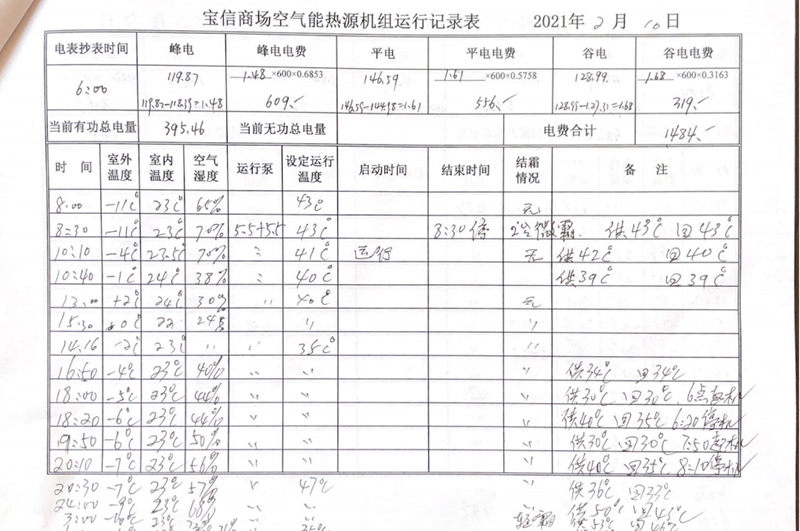 宝信商场空气能热源机组运行记录表 2021年2月10日
电表抄表时间 峰电 峰电电费 平电 平电电费 谷电 谷电电费
6:00 119.87 1.48×600×0.6853 146.59 1.61×600×0.5758 128.99 1.68×600×0.3163
119.87-118.39=1.48 609.- 146.59-144.98=1.61 556.- 128.99-127.31=1.68 319.-
当前有功总电量 395.46 当前无功总电量 电费合计 1484.-
时间 室外温度 室内温度 空气湿度 运行泵 设定运行温度 启动时间 结束时间 结霜情况 备注
8:00 -11℃ 23℃ 65% 43℃ 无
8:30 -11℃ 23℃ 70% 5.5+5.5 43℃ 8:30停 微霜. 供43℃ 回43℃
10:10 -4℃ 23.5℃ 70% 〃 41℃ 运行 无 供42℃ 回40℃
10:40 -1℃ 24℃ 38% 〃 40℃ 供39℃ 回39℃
13:00 +2℃ 24℃ 30% 〃 40℃ 无
15:30 ±0℃ 22 24% 〃 〃
14.16 -2℃ 23℃ 〃 〃 35℃ 〃
16:50 -4℃ 23℃ 40% 〃 〃 〃 供34℃ 回34℃
18:00 -5℃ 23℃ 44% 〃 〃 〃 供30℃ 回30℃ 6点起机
18:20 -6℃ 23℃ 44% 〃 〃 〃 供40℃ 回35℃ 6:20停机
19:50 -6℃ 23℃ 50% 〃 〃 〃 供30℃ 回30℃ 7:50起机
20:10 -7℃ 23℃ 56% 〃 〃 〃 供40℃ 回35℃ 8:10停机
20:30 -7℃ 23℃ 57% 〃 47℃ 〃 供36℃ 回33℃
24:00 -9℃ 23℃ 68% 〃 〃 〃 供50℃ 回45℃
3:00 23℃ 〃 供53℃ 回46℃